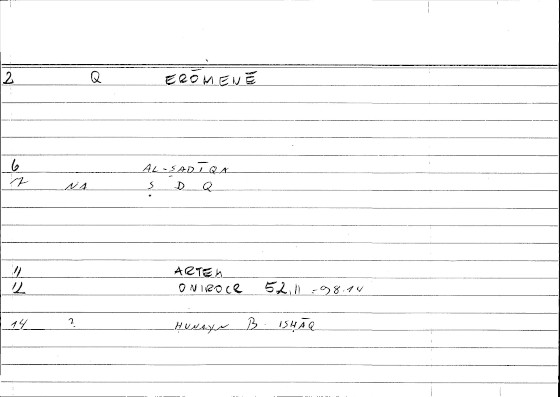 2 Q ERŌMENĒ
6 AL-ṢADĪQA
7 NA Ṣ D Q
11 ARTEM
12 ONIROCR 52,11 = 98.14
14 ? ḤUNAYN B. ISḤĀQ